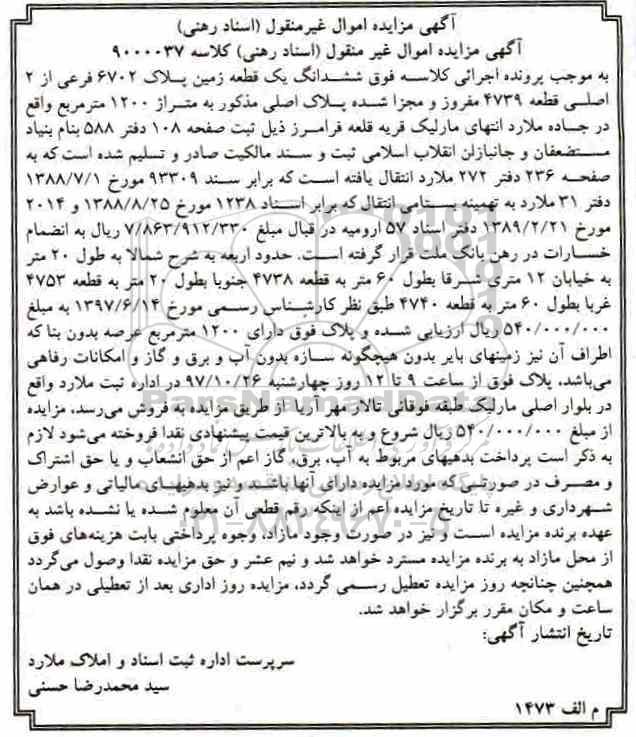 آگهی مزایده اموال غیرمنقول (اسناد رهنی)
آگهی مزایده اموال غیر منقول (اسناد رهنی) کلاسه ۹۰۰۰۰۳۷
به موجب پرونده اجرائی کلاسه فوق ششدانگ یک قطعه زمین پلاک ۶۷۰۲ فرعی از ۲
اصلی قطعه ۴۷۳۹ مفروز و مجزا شده پلاک اصلی مذکور به متراژ ۱۲۰۰ مترمربع واقع
در جاده ملارد انتهای مارلیک قریه قلعه فرامرز ذیل ثبت صفحه ۱۰۸ دفتر ۵۸۸ بنام بنیاد
مستضعفان و جانبازان انقلاب اسلامی ثبت و سند مالکیت صادر و تسلیم شده است که به
صفحه ۲۳۶ دفتر ۲۷۲ ملارد انتقال یافته است که برابر سند ۹۳۳۰۹ مورخ ۱۳۸۸/۷/۱
دفتر ۳۱ ملارد به تهمینه بستامی انتقال که برابر اسناد ۱۲۳۸ مورخ ۱۳۸۸/۸/۲۵ و ۲۰۱۴
مورخ ۱۳۸۹/۲/۲۱ دفتر اسناد ۵۷ ارومیه در قبال مبلغ ۷/۸۶۳/۹۱۲/۳۳۰ ریال به انضمام
خسارات در رهن بانک ملت قرار گرفته است. حدود اربعه به شرح شمالا به طول ۲۰ متر
به خیابان ۱۲ متری شرقا بطول ۶۰ متر به قطعه ۴۷۳۸ جنوبا بطول ۲۰ متر به قطعه ۴۷۵۳
غربا بطول ۶۰ متر به قطعه ۴۷۴۰ طبق نظر کارشناس رسمی مورخ ۱۳۹۷/۶/۱۴ به مبلغ
۵۴۰/۰۰۰/۰۰۰ ریال ارزیابی شده و پلاک فوق دارای ۱۲۰۰ مترمربع عرصه بدون بنا که
اطراف آن نیز زمینهای بایر بدون هیچگونه سازه بدون آب و برق و گاز و امکانات رفاهی
می‌باشد، پلاک فوق از ساعت ۹ تا ۱۲ روز چهارشنبه ۹۷/۱۰/۲۶ در اداره ثبت ملارد واقع
در بلوار اصلی مارلیک طبقه فوقانی تالار مهر آریا از طریق مزایده به فروش می‌رسد، مزایده
از مبلغ ۵۴۰/۰۰۰/۰۰۰ ریال شروع و به بالاترین قیمت پیشنهادی نقدا فروخته می‌شود لازم
به ذکر است پرداخت بدهیهای مربوط به آب، برق، گاز اعم از حق انشعاب و یا حق اشتراک
و مصرف در صورتی که مورد مزایده دارای آنها باشد و نیز بدهیهای مالیاتی و عوارض
شهرداری و غیره تا تاریخ مزایده اعم از اینکه رقم قطعی آن معلوم شده یا نشده باشد به
عهده برنده مزایده است و نیز در صورت وجود مازاد، وجوه پرداختی بابت هزینه‌های فوق
از محل مازاد به برنده مزایده مسترد خواهد شد و نیم عشر و حق مزایده نقدا وصول می‌گردد
همچنین چنانچه روز مزایده تعطیل رسمی گردد، مزایده روز اداری بعد از تعطیلی در همان
ساعت و مکان مقرر برگزار خواهد شد.
تاریخ انتشار آگهی:
سرپرست اداره ثبت اسناد و املاک ملارد
سید محمدرضا حسنی
م الف ۱۴۷۳
ParsNamadData
۰۲۱-۸۸۳۴۹۶۷۰-۵